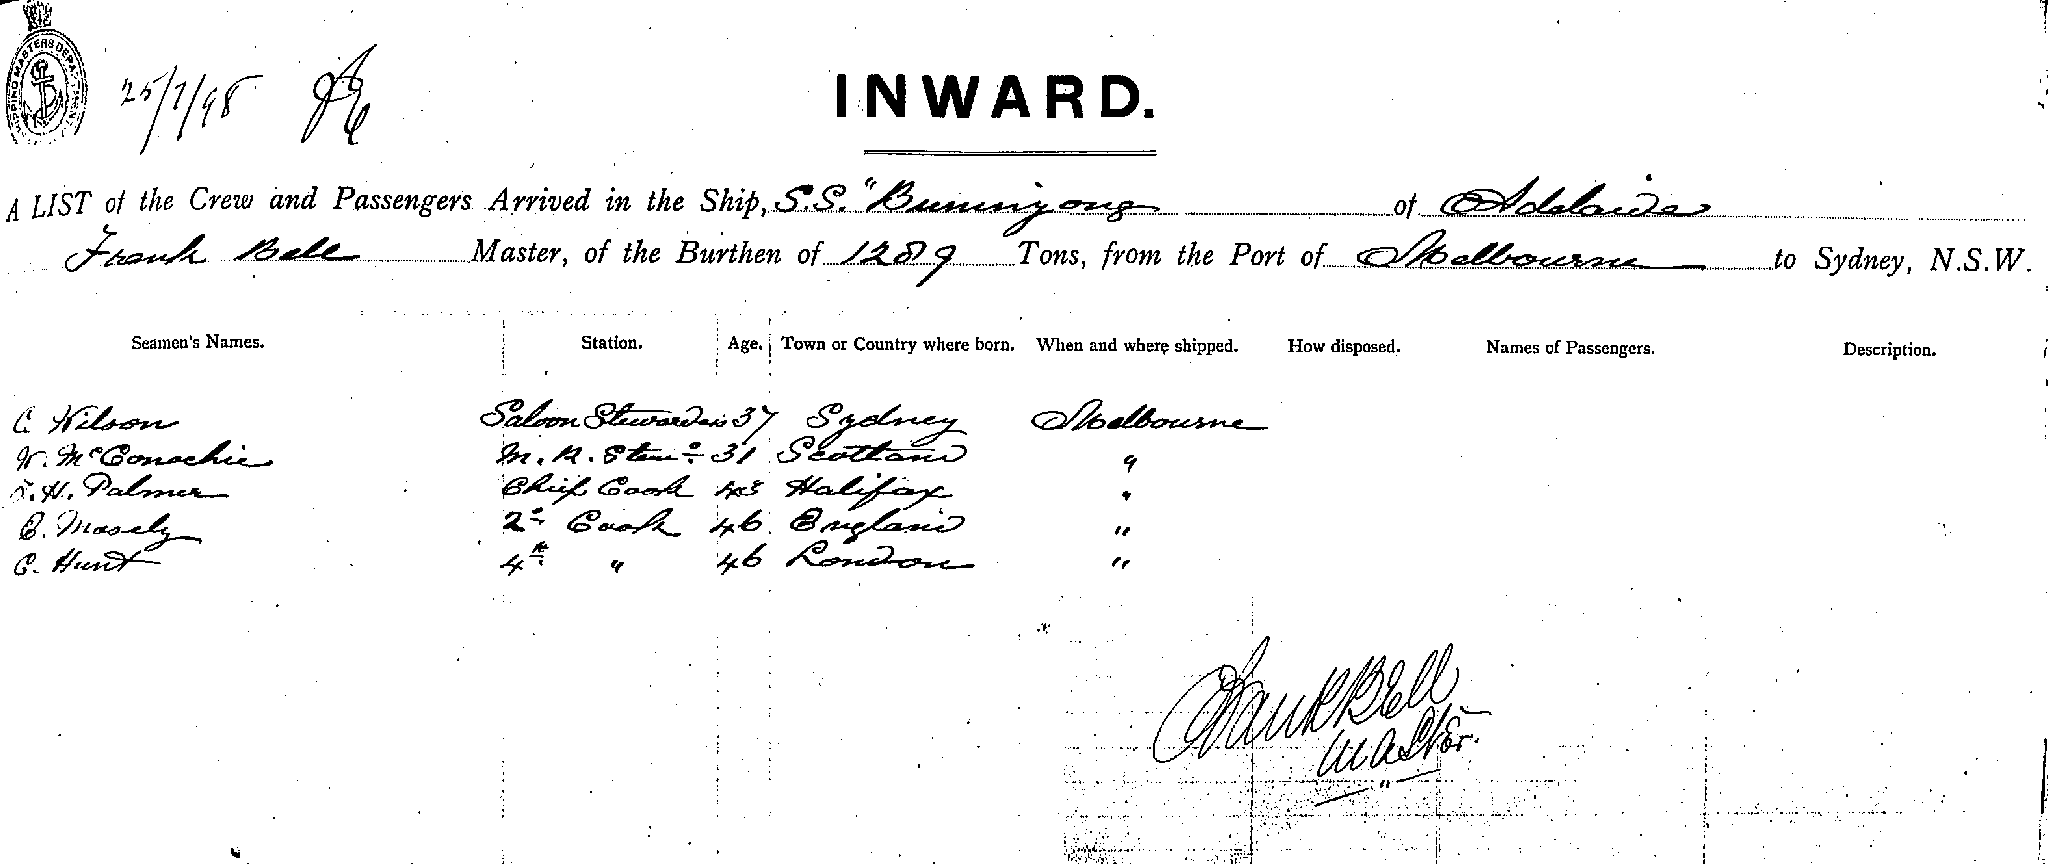 SHIPPING MASTERS DEPARTMENT
25/1/98
INWARD.
A LIST of the Crew and Passengers Arrived in the Ship, S.S. "Buninyong of Adelaide
Frank Bell Master, of the Burthen of 1289 Tons, from the Port of Melbourne to Sydney, N.S.W.
Seamen's Names. Station. Age. Town or Country where born. When and where shipped. How disposed. Names of Passengers. Description.
C Wilson Saloon Stewardess 37 Sydney Melbourne
W. McConachie M. R. 31 Scotland "
H. Palmer Chief Cook 43 Halifax "
C. Mosely 2d Cook 46 England "
C. Hunt 4th " 46 London "
Frank Bell
Master